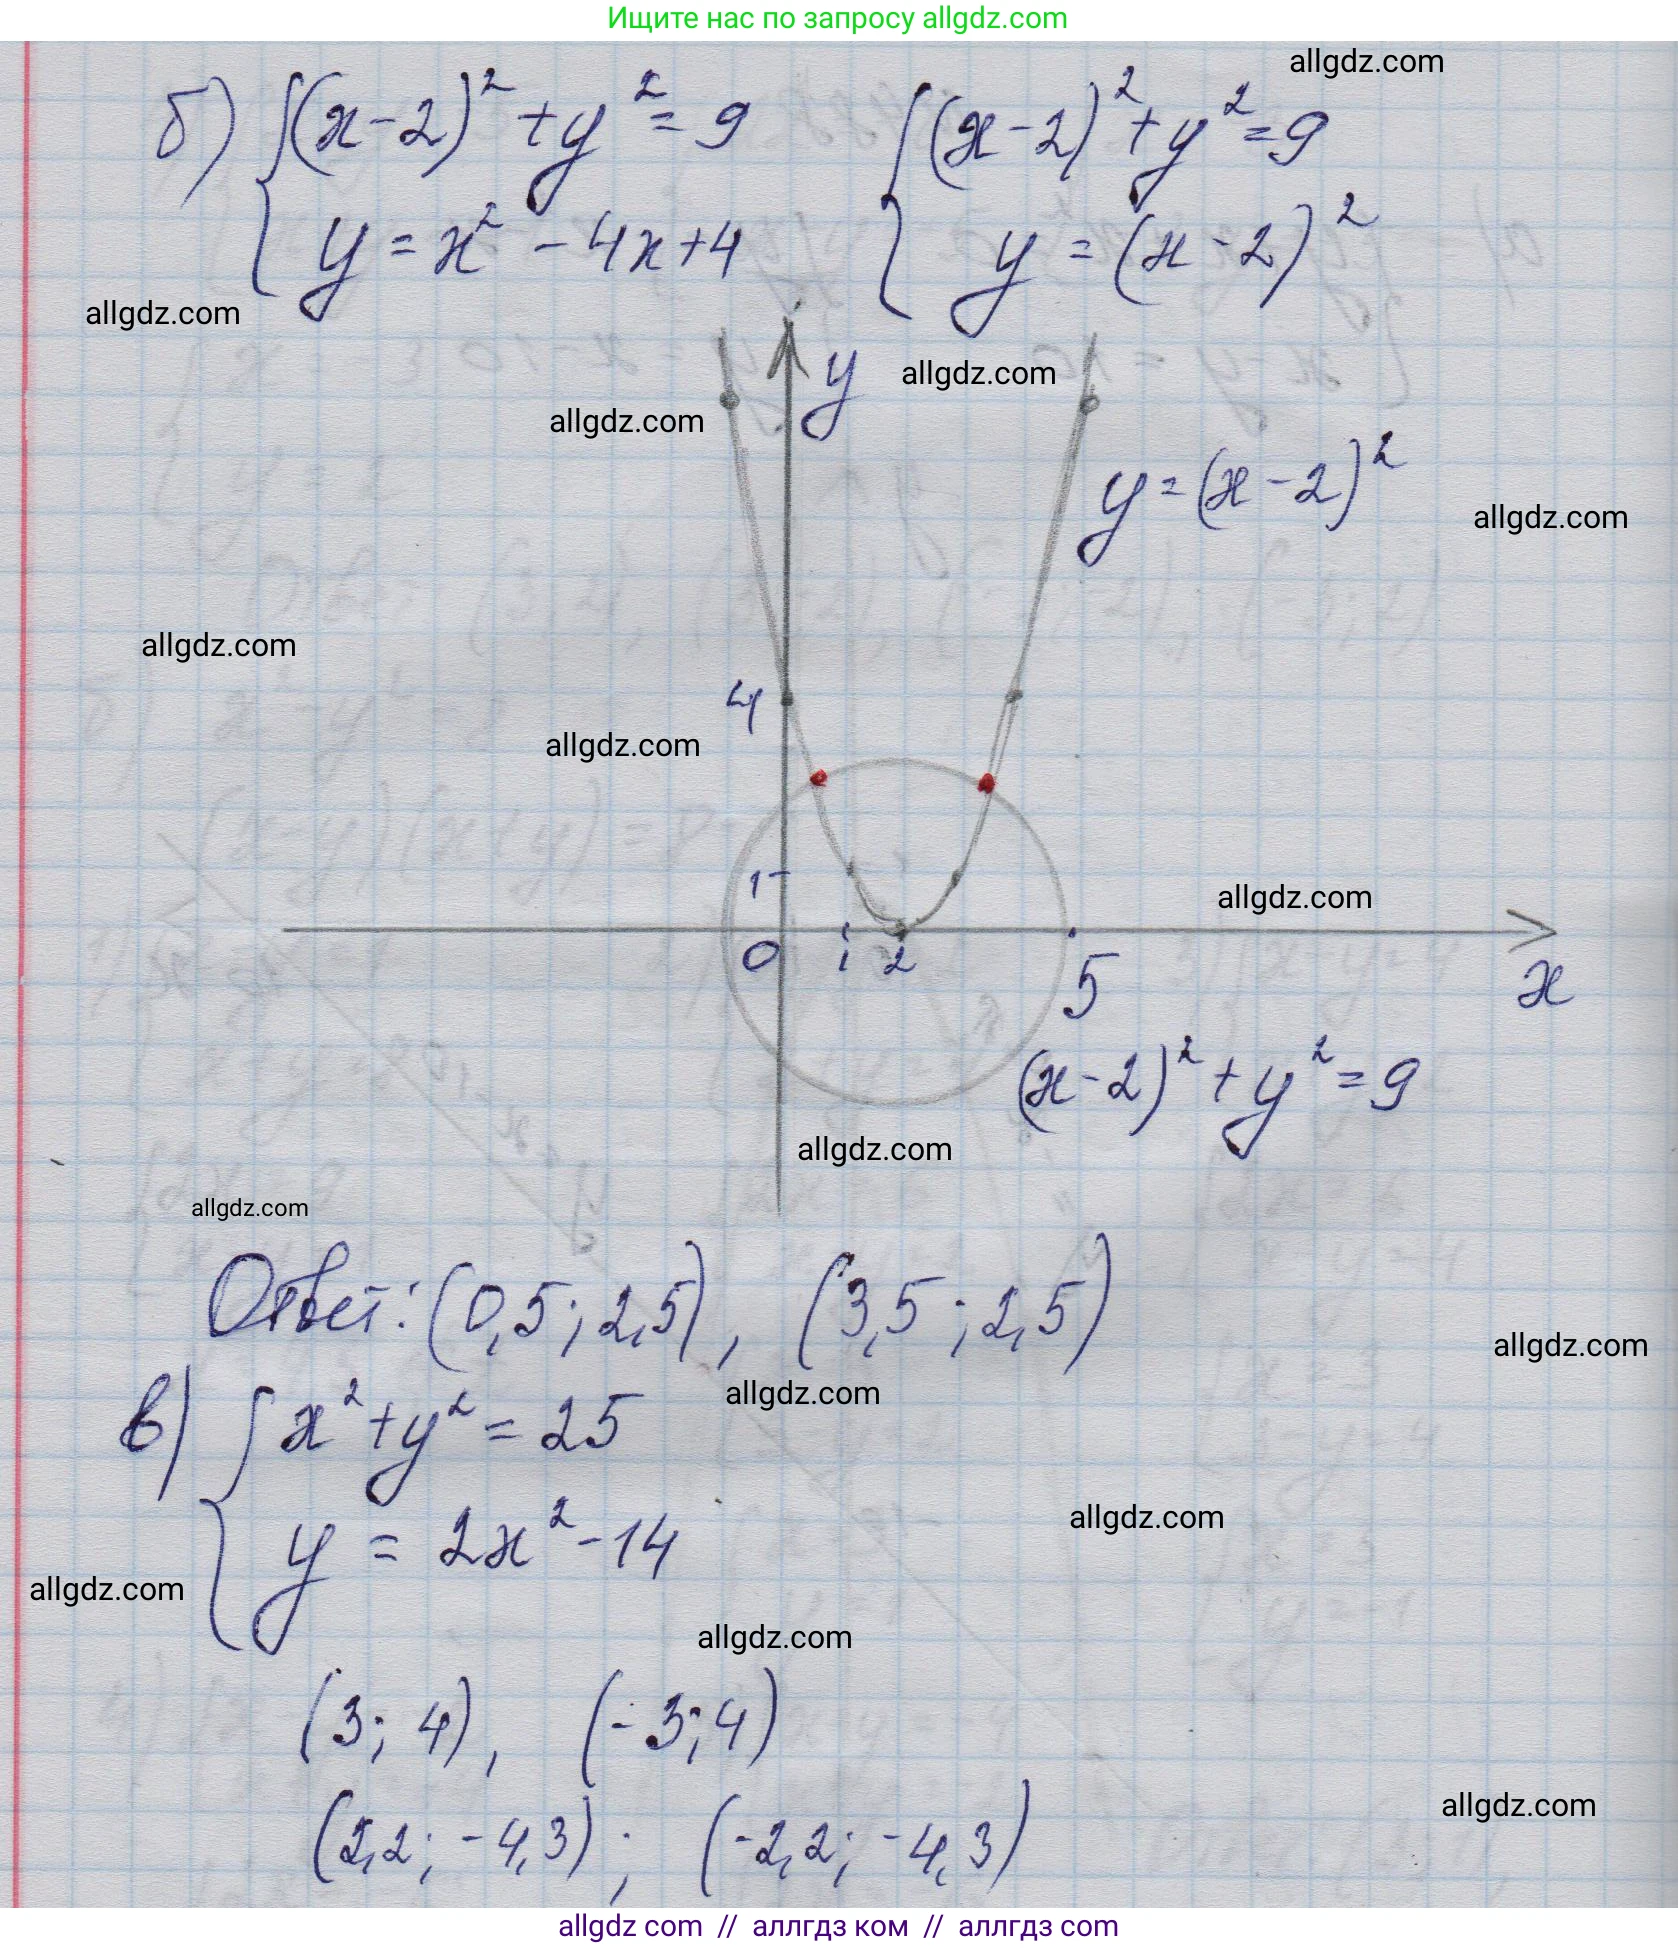 Ищите нас по запросу allgdz.com
allgdz.com
б) { (x-2)² + y² = 9 { (x-2)² + y² = 9
y = x² - 4x + 4 y = (x-2)²
allgdz.com
y
allgdz.com
allgdz.com
y = (x-2)²
allgdz.com
allgdz.com
4
allgdz.com
1
allgdz.com
0 1 2 5 x
(x-2)² + y² = 9
allgdz.com
allgdz.com
Ответ: (0,5; 2,5), (3,5; 2,5)
allgdz.com
allgdz.com
в) { x² + y² = 25
y = 2x² - 14
allgdz.com
allgdz.com
allgdz.com
(3; 4), (-3; 4)
allgdz.com
(2,2; -4,3); (-2,2; -4,3)
allgdz com // аллгдз ком // аллгдз com